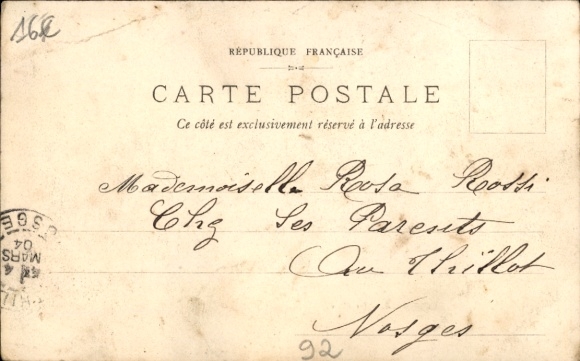 16€
RÉPUBLIQUE FRANÇAISE
CARTE POSTALE
Ce côté est exclusivement réservé à l'adresse
Mademoiselle Rosa Rossi
Chez Ses Parents
Au Thillot
Vosges
MARS
04
92